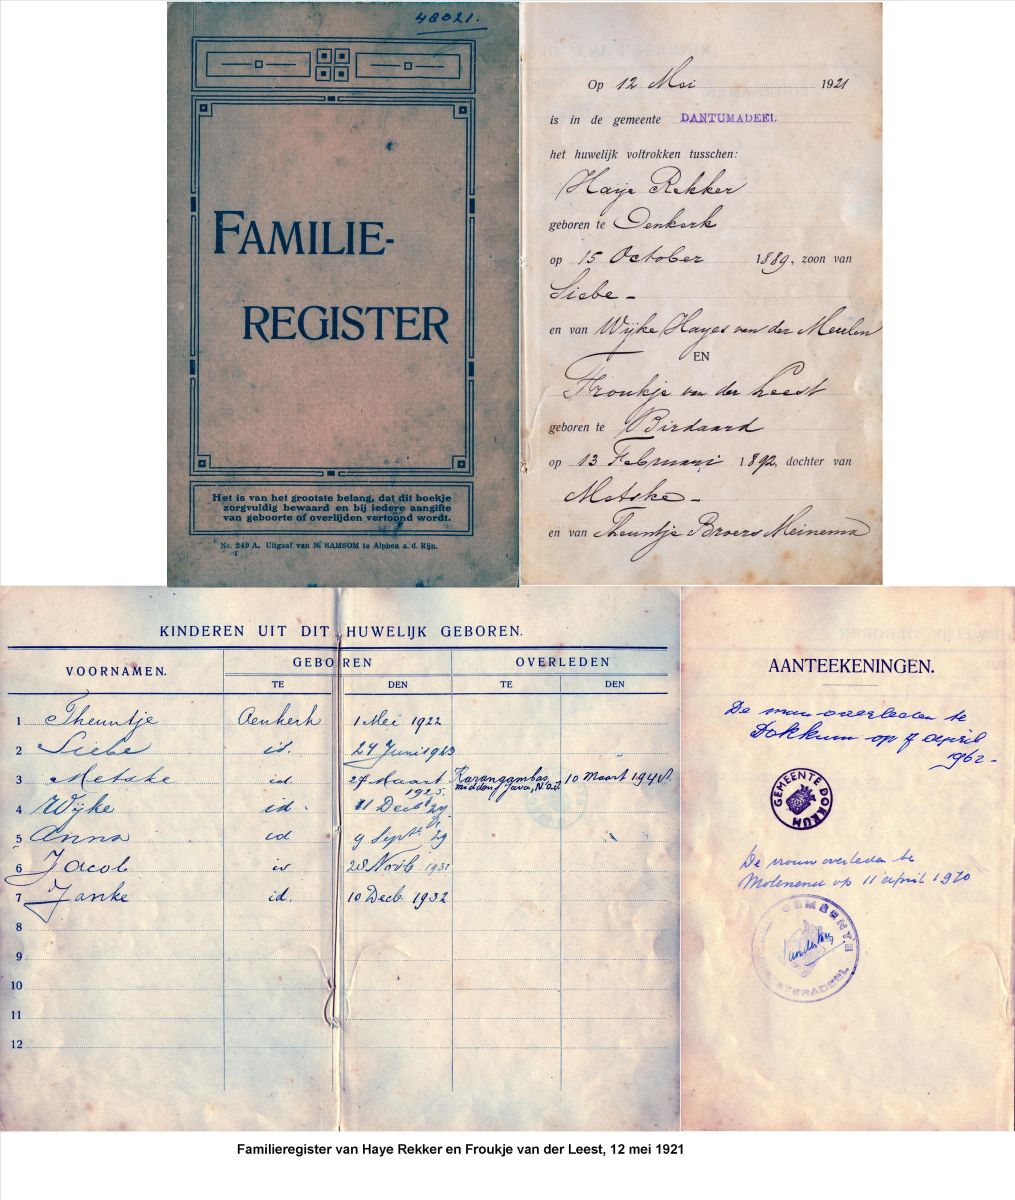 48021.
FAMILIE-
REGISTER
Het is van het grootste belang, dat dit boekje
zorgvuldig bewaard en bij iedere aangifte
van geboorte of overlijden vertoond wordt.
No. 249 A. Uitgaaf van N. SAMSOM te Alphen a. d. Rijn.
I
Op 12 Mei 1921
is in de gemeente DANTUMADEEL
het huwelijk voltrokken tusschen:
Haije Rekker
geboren te Oenkerk
op 15 October 1889, zoon van
Siebe -
en van Wijke Hayes van der Meulen
EN
Froukje van der Leest
geboren te Birdaard
op 13 Februari 1892, dochter van
Metske -
en van Theuntje Broers Meinema
KINDEREN UIT DIT HUWELIJK GEBOREN.
VOORNAMEN. GEBOREN OVERLEDEN
TE DEN TE DEN
1 Theuntje Oenkerk 1 Mei 1922
2 Siebe id. 24 Juni 1923
3 Metske id 27 Maart 1925. Karangambas midden Java, N.O.I. 10 Maart 194
4 Wijke id. 11 Decb 27
5 Anna id 9 Septb 29
6 Jacob id 28 Novb 1931
7 Janke id. 10 Decb 1932
8
9
10
11
12
AANTEEKENINGEN.
De man overleden te
Dokkum op 7 april
1962 -
GEMEENTE DOKKUM
De vrouw overleden te
Molenend op 11 april 1970
GEMEENTE
Familieregister van Haye Rekker en Froukje van der Leest, 12 mei 1921